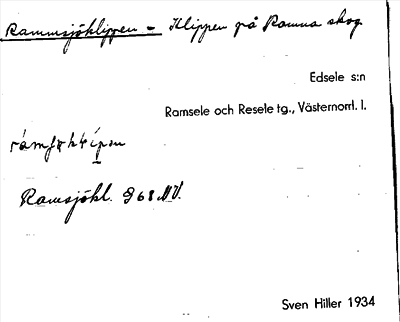 Rammsjöklippen - Klippen på Ramna skog
Edsele s:n
Ramsele och Resele tg., Västernorrl. l.
Ramsjökl. 968 NV.
Sven Hiller 1934